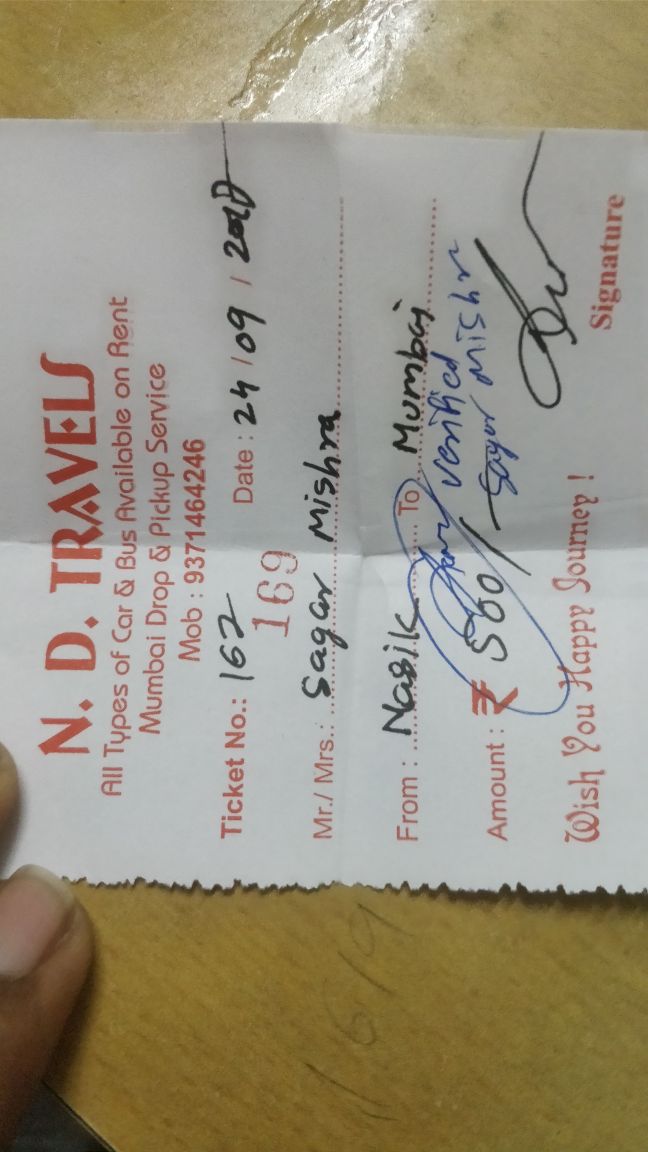 N. D. TRAVELS
All Types of Car & Bus Available on Rent
Mumbai Drop & Pickup Service
Mob : 9371464246
Ticket No.: 162 Date : 24/09/
169
Mr./ Mrs.: Sagar Mishra
From : Nasik To Mumbai
verified
Sagar Mishr
Amount : ₹ 500/-
Wish You Happy Journey !
Signature